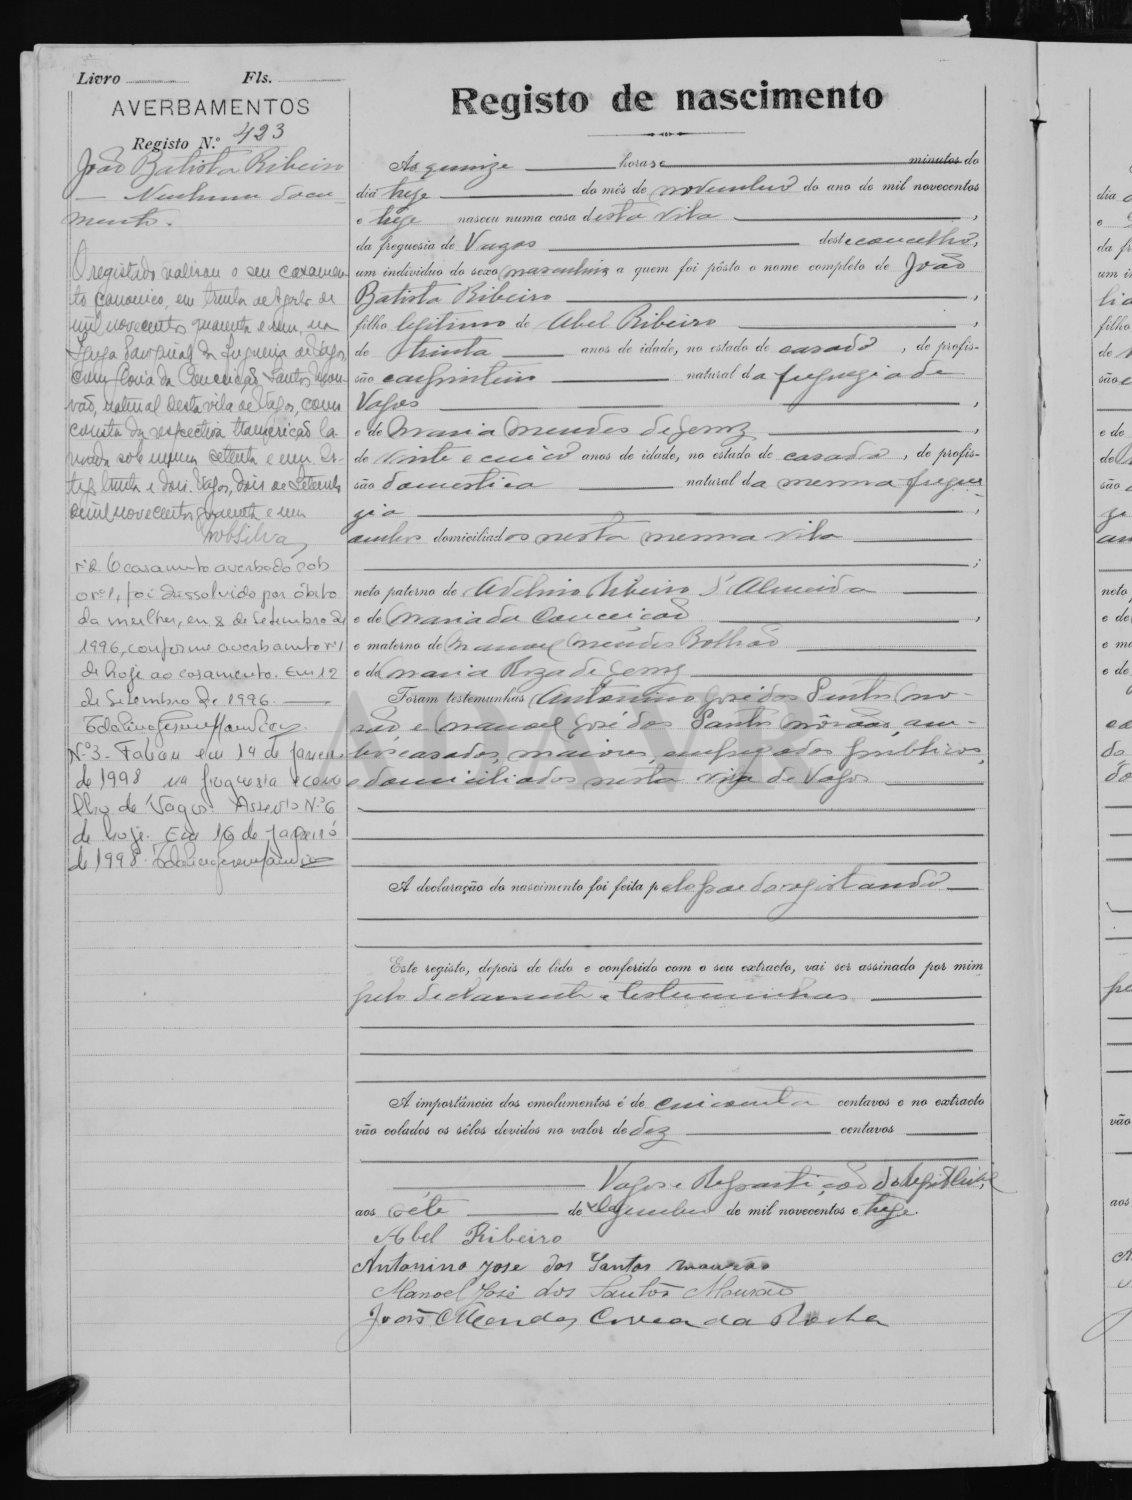 Livro Fls.
AVERBAMENTOS
Registo N.º 423
João Batista Ribeiro
— Nenhum docu-
mento.
O registado realizou o seu casamen-
to canonico, em trinta de Agosto de
mil novecentos quarenta e um, na
Igreja Paroquial da freguesia de Vagos,
com Maria da Conceição Santos Mou-
rão, natural desta vila de Vagos, como
consta da respectiva transcrição la
vrada sob numero setenta e um.
trinta e dois. Vagos, dois de Setembro
de mil novecentos quarenta e um
nº 2. O casamento averbado sob
o nº 1, foi dissolvido por óbito
da mulher, em 8 de Setembro de
1996, conforme averbamento nº 1
de hoje ao casamento. Em 12
de Setembro de 1996.
Nº 3 - Faleceu em 14 de Janeiro
de 1998 na freguesia e conce
lho de Vagos. Assento Nº 6
de hoje. Em 16 de Janeiro
de 1998.
Registo de nascimento
Ás quinze horas e minutos do
dia treze do mês de novembro do ano de mil novecentos
e treze nasceu numa casa desta vila,
da freguesia de Vagos deste concelho,
um individuo do sexo masculino a quem foi pôsto o nome completo de João
Batista Ribeiro,
filho legitimo de Abel Ribeiro,
de trinta anos de idade, no estado de casado, de profis-
são carpinteiro natural da freguezia de
Vagos,
e de Maria Mendes de Jesus,
de vinte e cinco anos de idade, no estado de casada, de profis-
são domestica natural da mesma fregue-
zia,
ambos domiciliados nesta mesma vila
;
neto paterno de Adelino Ribeiro d'Almeida
e de Maria da Conceição
e materno de Manoel Mendes Bolhão
e de Maria Roza de Jesus
Foram testemunhas Antonino José dos Santos Mou-
rão, e Manoel José dos Santos Mourão, am-
bos casados, maiores, empregados publicos,
e domiciliados nesta vila de Vagos
A declaração do nascimento foi feita pelo pae do registando
Este registo, depois de lido e conferido com o seu extracto, vai ser assinado por mim
pelo declarante e testemunhas
A importância dos emolumentos é de cincoenta centavos e no extracto
vão colados os sêlos devidos no valor de dez centavos
Vagos e Repartição do Registo Civil,
aos sete de dezembro de mil novecentos e treze.
Abel Ribeiro
Antonino Jose dos Santos Mourão
Manoel José dos Santos Mourão
João Mendes Correa da Rocha